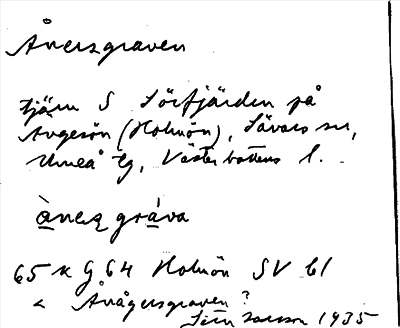 Ånersgraven
tjärn S Sörfjärden på
Ängesön (Holmön), Sävars sn,
Umeå tg, Västerbottens l.
ànerz gráva
65 k g 64 Holmön SV bl
< Åvägersgraven?
1935